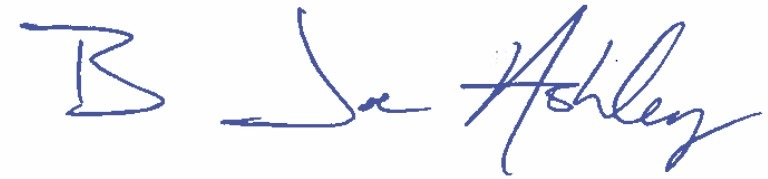 B Joe Ashley